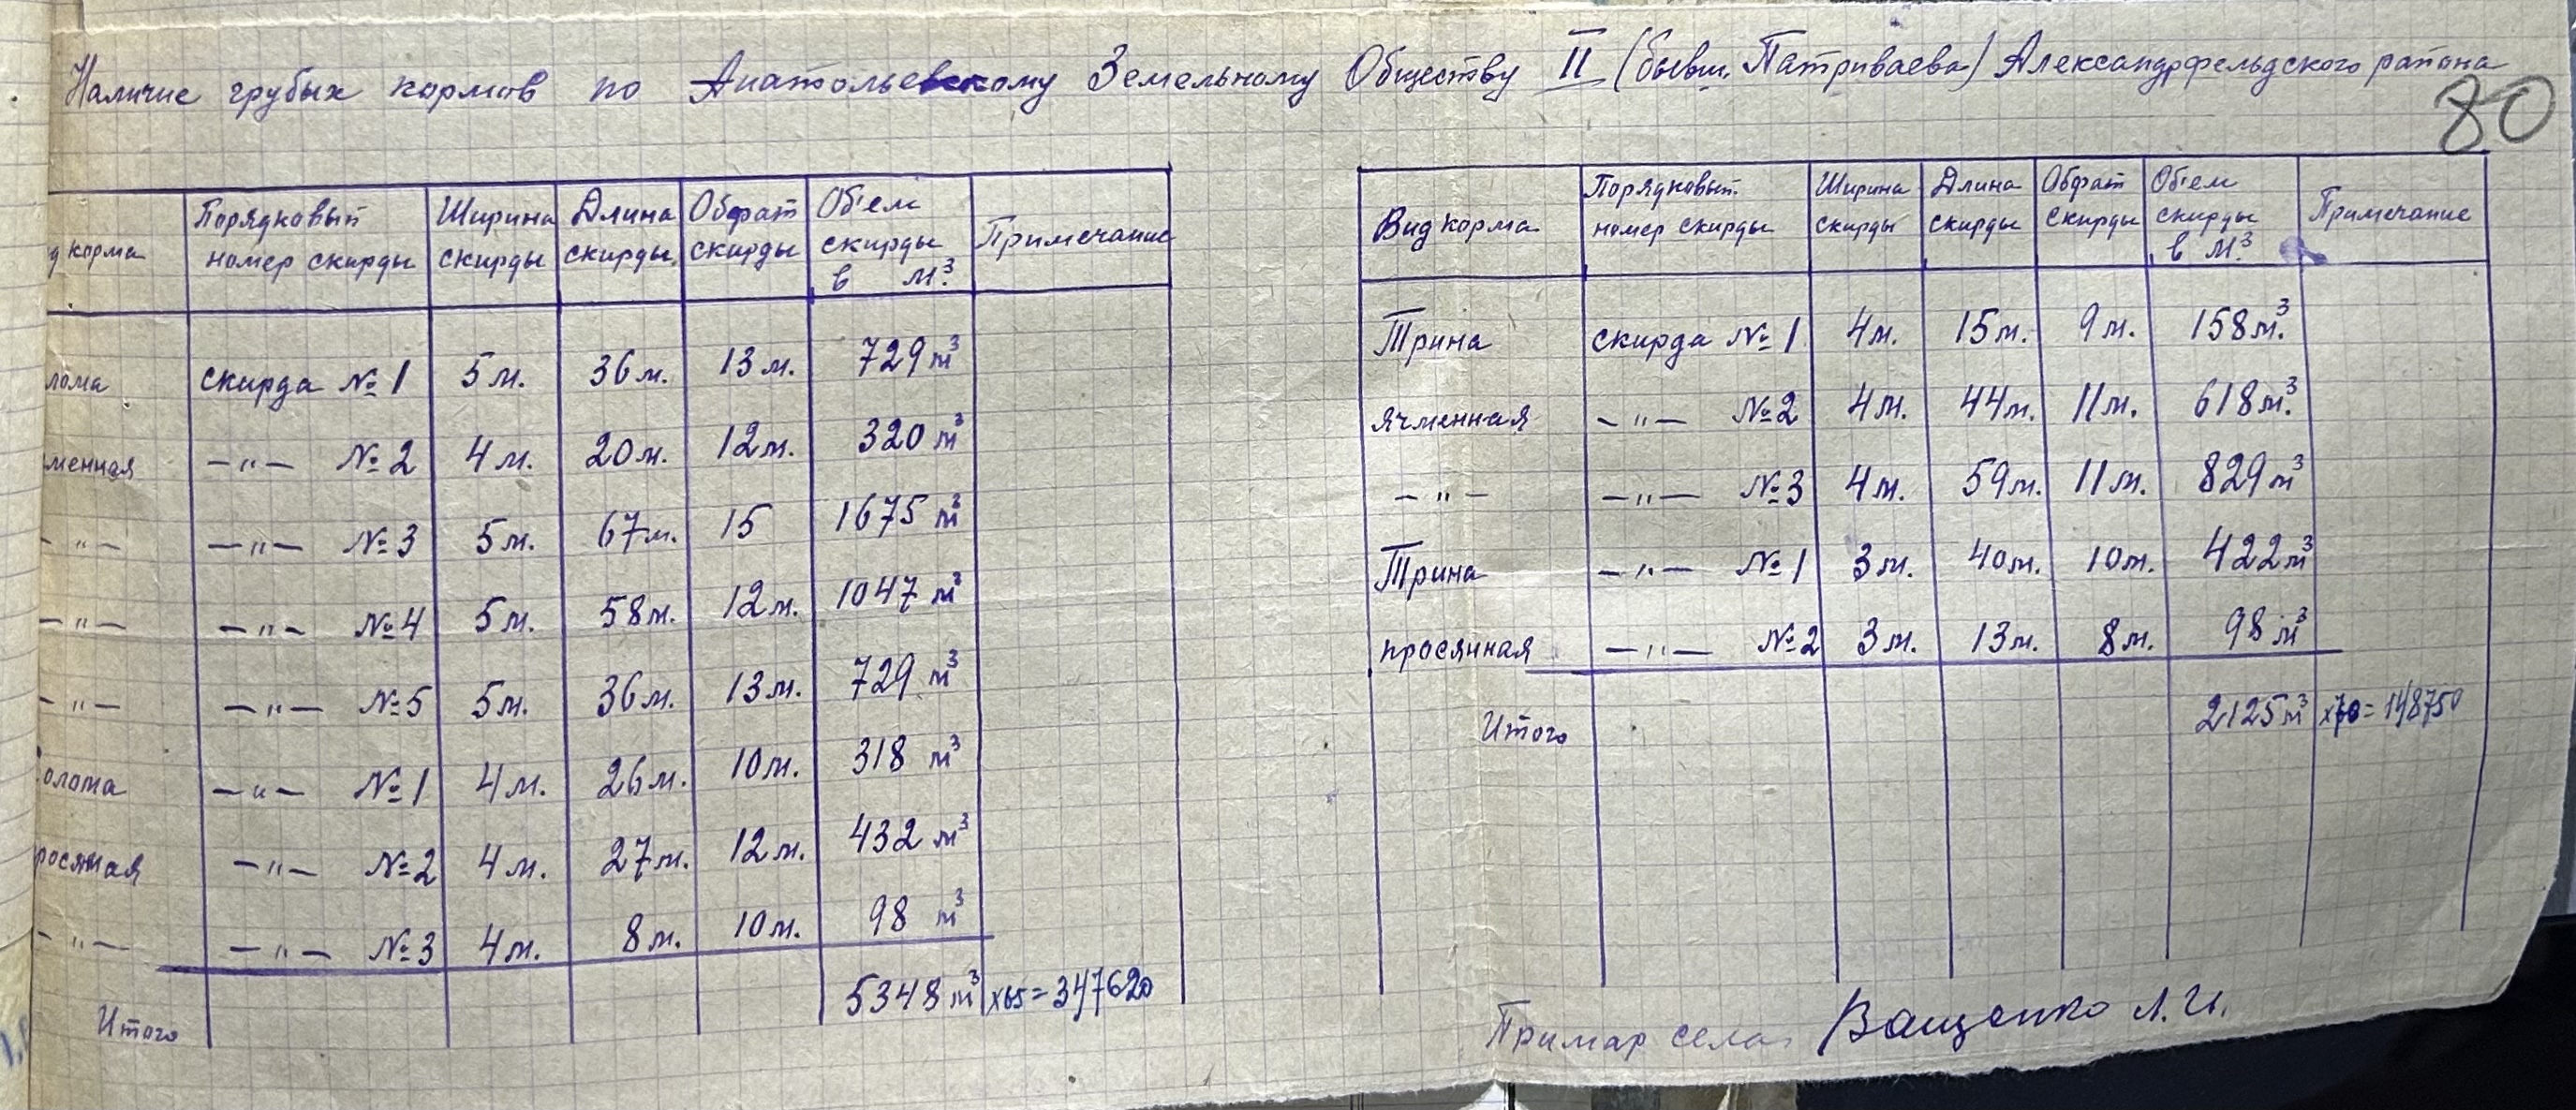 Наличие грубых кормов по Анатольевскому Земельному Обществу II (бывш. Патриваева) Александрфельдского района
80
д корма Порядковый номер скирды Ширина скирды Длина скирды. Обхват скирды Об'ем скирды в м³. Примечание
лома скирда №1 5м. 36м. 13м. 729 м³
менная —"— №2 4м. 20м. 12м. 320 м³
—"— —"— №3 5м. 67м. 15 1675 м³
—"— —"— №4 5м. 58м. 12м. 1047 м³
—"— —"— №5 5м. 36м. 13м. 729 м³
олома —"— №1 4м. 26м. 10м. 318 м³
росяная —"— №2 4м. 27м. 12м. 432 м³
—"— —"— №3 4м. 8м. 10м. 98 м³
Итого 5348 м³ х65=347620
Вид корма Порядковый номер скирды Ширина скирды Длина скирды Обхват скирды Об'ем скирды в м³. Примечание
Трина скирда №1 4м. 15м. 9м. 158м³.
ячменная —"— №2 4м. 44м. 11м. 618м³.
—"— —"— №3 4м. 59м. 11м. 829м³
Трина —"— №1 3м. 40м. 10м. 422м³
просянная —"— №2 3м. 13м. 8м. 98м³
Итого 2125м³ х70=148750
Примар села Ващенко Л.И.